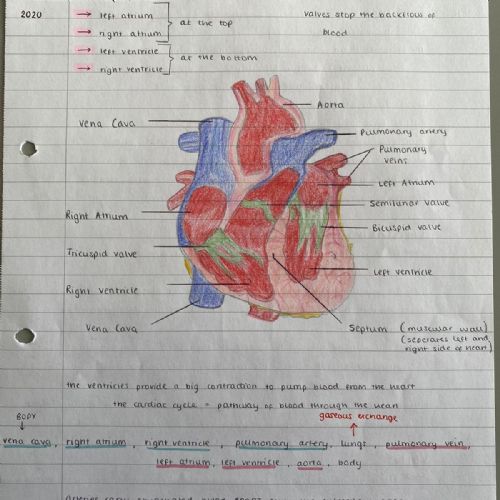 2020
→ left atrium
→ right atrium
at the top
→ left ventricle
→ right ventricle
at the bottom
valves stop the backflow of
blood
Aorta
Vena Cava
Pulmonary artery
Pulmonary
veins
Left Atrium
Semilunar valve
Right Atrium
Bicuspid valve
Tricuspid valve
Left ventricle
Right ventricle
Vena Cava
Septum (muscular wall)
(seperates left and
right side of heart)
the ventricles provide a big contraction to pump blood from the heart
the cardiac cycle = pathway of blood through the
gaseous exchange
BODY
vena cava, right atrium, right ventricle, pulmonary artery, lungs, pulmonary vein,
left atrium, left ventricle, aorta, body